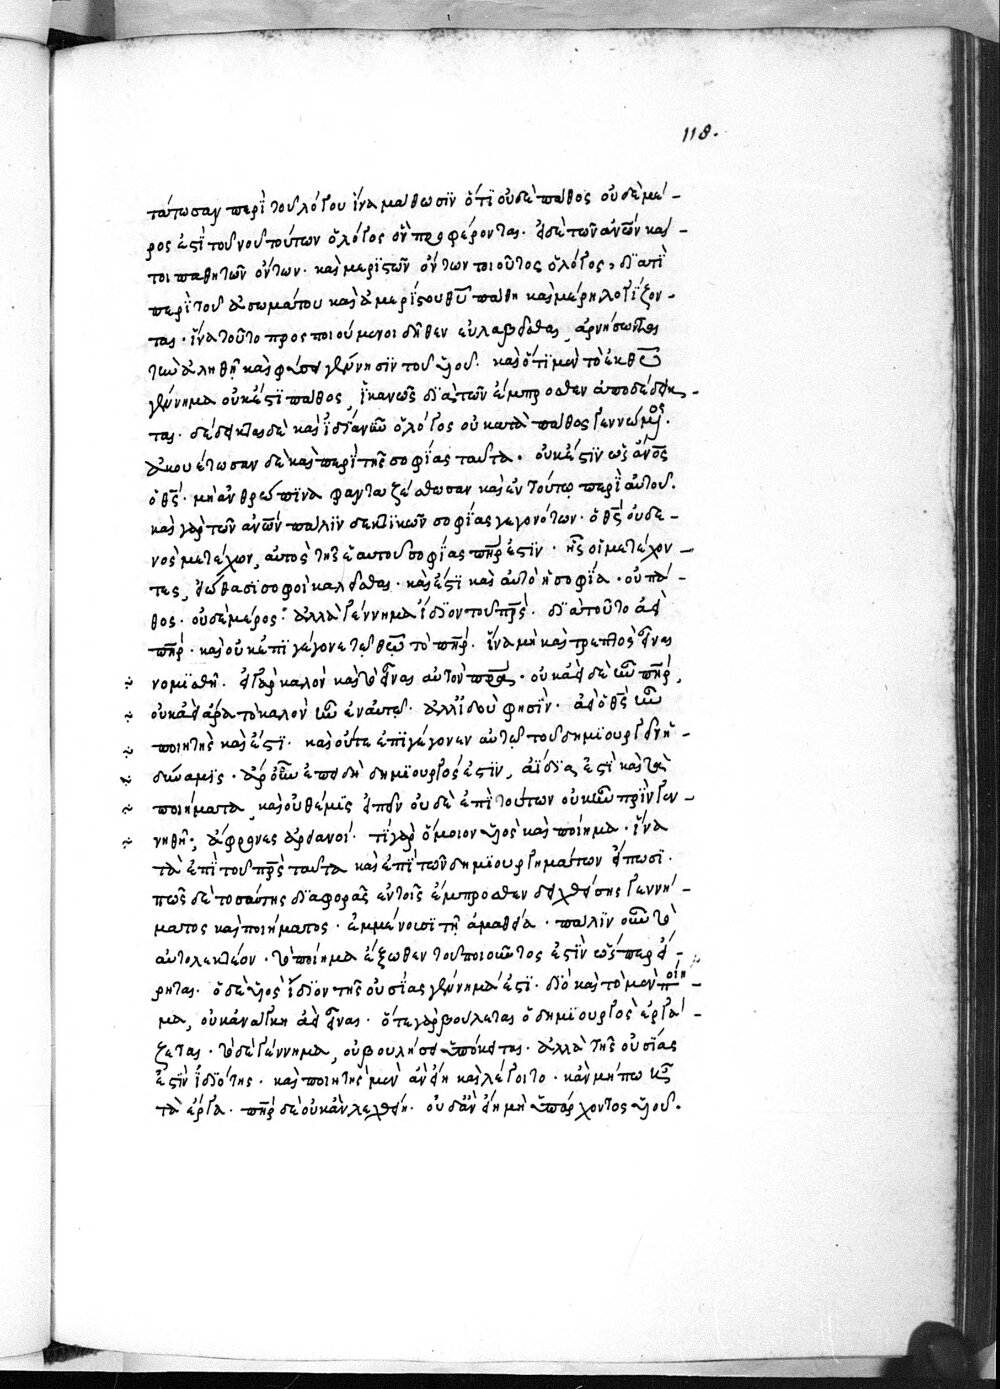 118.
τάτωσαν περὶ τοῦ λόγου ἵνα μάθωσϊν ὅτϊ οὐδὲ πάθος οὐδὲ μέ-
ρος ἐστὶ τοῦ νοῦ τούτων ὁ λόγος ὃν προφέρονται. εἰ δὲ τῶν ἀνῶν καί-
τοι παθητῶν ὄντων. καὶ μερϊστῶν ὄντων τοιοῦτος ὁ λόγος, διατὶ
περὶ τοῦ ἀσωμάτου καὶ ἀμερίστου θῦ πάθη καὶ μέρη λογίζον-
ται. ἵνα τοῦτο προςποιούμενοι δῆθεν εὐλαβεῖσθαι, ἀρνήσωνται
τὴν ἀληθῆ καὶ φύσει γέννησϊν τοῦ υἱοῦ. καὶ ὅτϊ μὲν τὸ ἐκ θῦ
γέννημα οὐκ ἔστϊ πάθος, ἱκανῶς διὰ τῶν ἔμπροσθεν ἀποδέδεικ-
ται. δέδεικται δὲ καὶ ἰδίᾳ νῦν ὁ λόγος οὐ κατὰ πάθος γεννώμενος.
ἀκουέτωσαν δὲ καὶ περὶ τῆς σοφίας ταῦτα. οὐκ ἔστϊν ὡς ἄνος
ὁ θς. μὴ ἀνθρώπϊνα φανταζέσθωσαν καὶ ἐν τούτω περὶ αὐτοῦ.
καὶ γὰρ τῶν ἀνῶν πάλϊν δεκτϊκῶν σοφίας γεγονότων. ὁ θς οὐδε-
νὸς μετέχον, αὐτὸς τῆς ἑαυτοῦ σοφίας πηρ ἐστϊν. ἧς οἱ μετέχον-
τες, εἰώθασϊ σοφοὶ καλεῖσθαι. καὶ ἔστϊ καὶ αὐτὸ ἡ σοφία. οὐ πά-
θος. οὐδὲ μέρος. ἀλλὰ γέννημα ἴδϊον τοῦ πρς. διὰ τοῦτο ἀεὶ
πηρ. καὶ οὐκ ἐπϊγέγονε τῶ θεῶ τὸ πηρ. ἵνα μὴ καὶ τρεπτὸς εἶναι
νομϊσθῆ. εἰ γὰρ καλὸν καὶ τὸ εἶναι αὐτὸν πρα. οὐκ ἀεὶ δὲ ἦν πηρ,
οὐκ ἀεὶ ἄρα τὸ καλὸν ἦν ἐν αὐτῶ. ἀλλ' ἰδοὺ φησϊν. ἀεὶ ὁ θς ἦν
ποιητὴς καὶ ἔστϊ. καὶ οὔτε ἐπϊγέγονεν αὐτῶ τοῦ δημϊουργεῖν ἡ
δύναμϊς. ἆρ' οὖν ἐπειδὴ δημϊουργός ἐστϊν, ἀΐδϊα ἐστὶ καὶ τὰ
ποιήματα, καὶ οὐ θέμϊς εἰπεῖν οὐδὲ ἐπὶ τούτων οὐκ ἦν πρὶν γεν-
νηθῆ; ἄφρονες ἀρειανοί. τί γὰρ ὅμοιον υἱὸς καὶ ποίημα. ἵνα
τὰ ἐπὶ τοῦ πρς ταῦτα καὶ ἐπὶ τῶν δημϊουργημάτων εἴπωσϊ.
πῶς δὲ τοσαύτης διαφορᾶς ἐν τοῖς ἔμπροσθεν δειχθείσης γεννή-
ματος καὶ ποιήματος. ἐμμένουσϊ τῆ ἀμαθεία. πάλϊν οὖν τὸ
αὐτὸ λεκτέον. τὸ ποίημα ἔξωθεν τοῦ ποιοῦντος ἐστὶν ὥσπερ εἴ-
ρηται. ὁ δὲ υἱὸς ἴδϊον τῆς οὐσίας γέννημά ἐστϊ. δϊὸ καὶ τὸ μὲν ποίη-
μα, οὐκ ἀνάγκη ἀεὶ εἶναι. ὅτε γὰρ βούλεται ὁ δημϊουργὸς ἐργά-
ζεται. τὸ δὲ γέννημα, οὐ βουλήσει ὑπόκειται. ἀλλὰ τῆς οὐσίας
ἐστὶν ἰδϊότης. καὶ ποιητὴς μὲν ἂν εἴη καὶ λέγοιτο. κἂν μήπω ἦ
τὰ ἔργα. πηρ δὲ οὐκ ἂν λεχθείη. οὐδ' ἂν εἴη μὴ ὑπάρχοντος υἱοῦ.